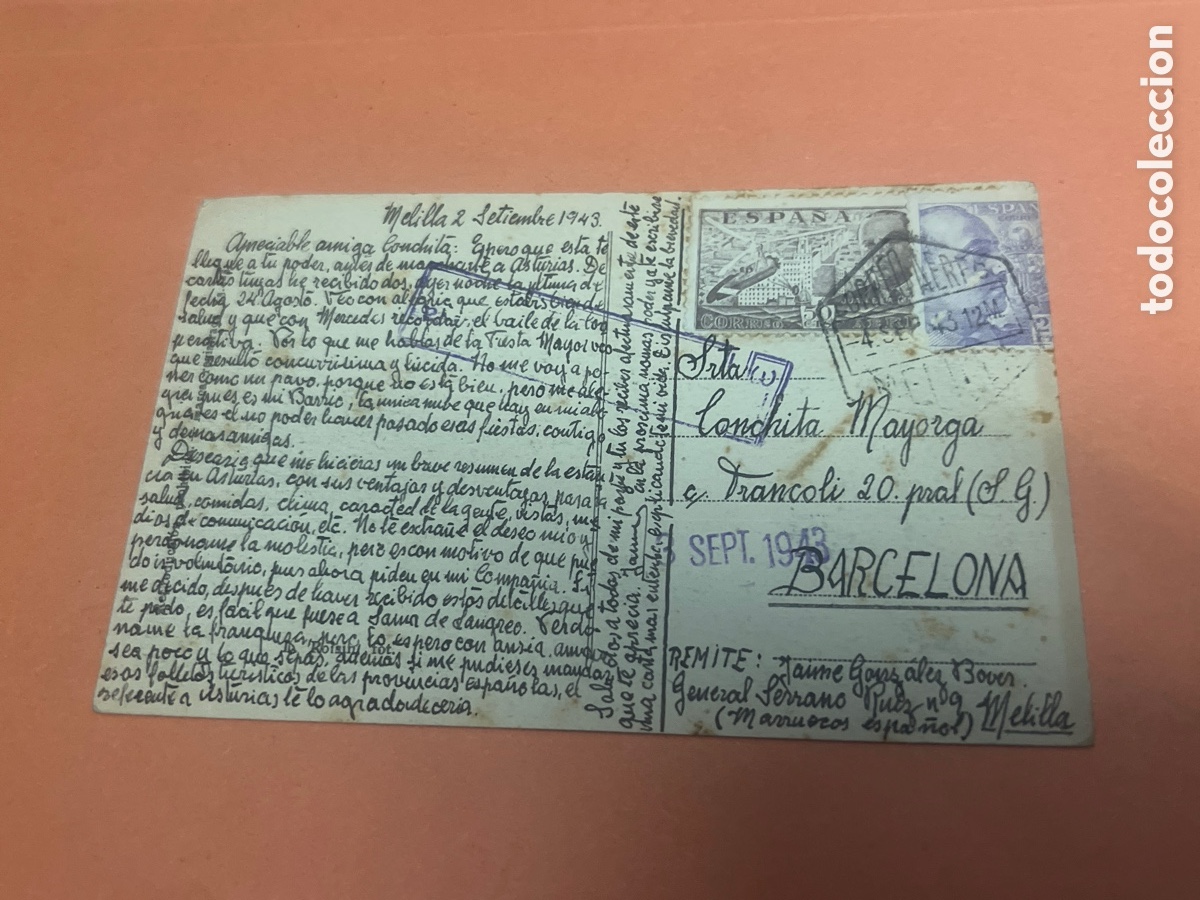 Melilla 2 Setiembre 1943.
Apreciable amiga Conchita: Espero que esta te
llegue a tu poder, antes de marcharte a Asturias. De
cartas tuyas he recibido dos, ayer noche la última de
fecha 24 Agosto. Veo con alegría que estás bien de
salud y que con Mercedes recordais el baile de la Coo-
perativa. Por lo que me hablas de la Fiesta Mayor veo
que resultó concurridísima y lúcida. No me voy a po-
ner como un pavo, porque no está bien, pero me ale-
gra pues es mi Barrio, la única nube que hay en mi
es el no poder haver pasado esas fiestas, contigo
y demás amigas.
Desearía que me hicieras un breve resumen de la estan-
cia en Asturias, con sus ventajas y desventajas para
salud, comidas, clima, caracter de la gente, vistas, me-
dios de comunicación, etc. No te extrañe el deseo mio y
perdoname la molestia, pero es con motivo de que
voluntario, pues ahora piden en mi Compañía. Si
me decido, después de haver recibido estos detalles que
te pido, es fácil que fuese a Sama de Langreo. Perdo-
name la franqueza, pero lo espero con ansia, aunque
sea poco y lo que sepas, además si me pudieses mandar
esos folletos turísticos de las provincias españolas, el
referente a Asturias te lo agradecería.
Saludos a todos de mi parte y tu los recibes afectuosamente de este
que te aprecia. Jaume
una carta mas extensa, explicandote mi vida. Disimpame la brevedad.
Roisin, fot.
ESPAÑA
CORREO
50
ESPAÑA
CORREO AEREO
43 12M
Srta
Conchita Mayorga
ç. Francoli 20. pral (S.G.)
SEPT. 1943
BARCELONA
REMITE: Jaume González Bover.
General Serrano Ruiz nº 9
(Marruecos español) Melilla
todocoleccion